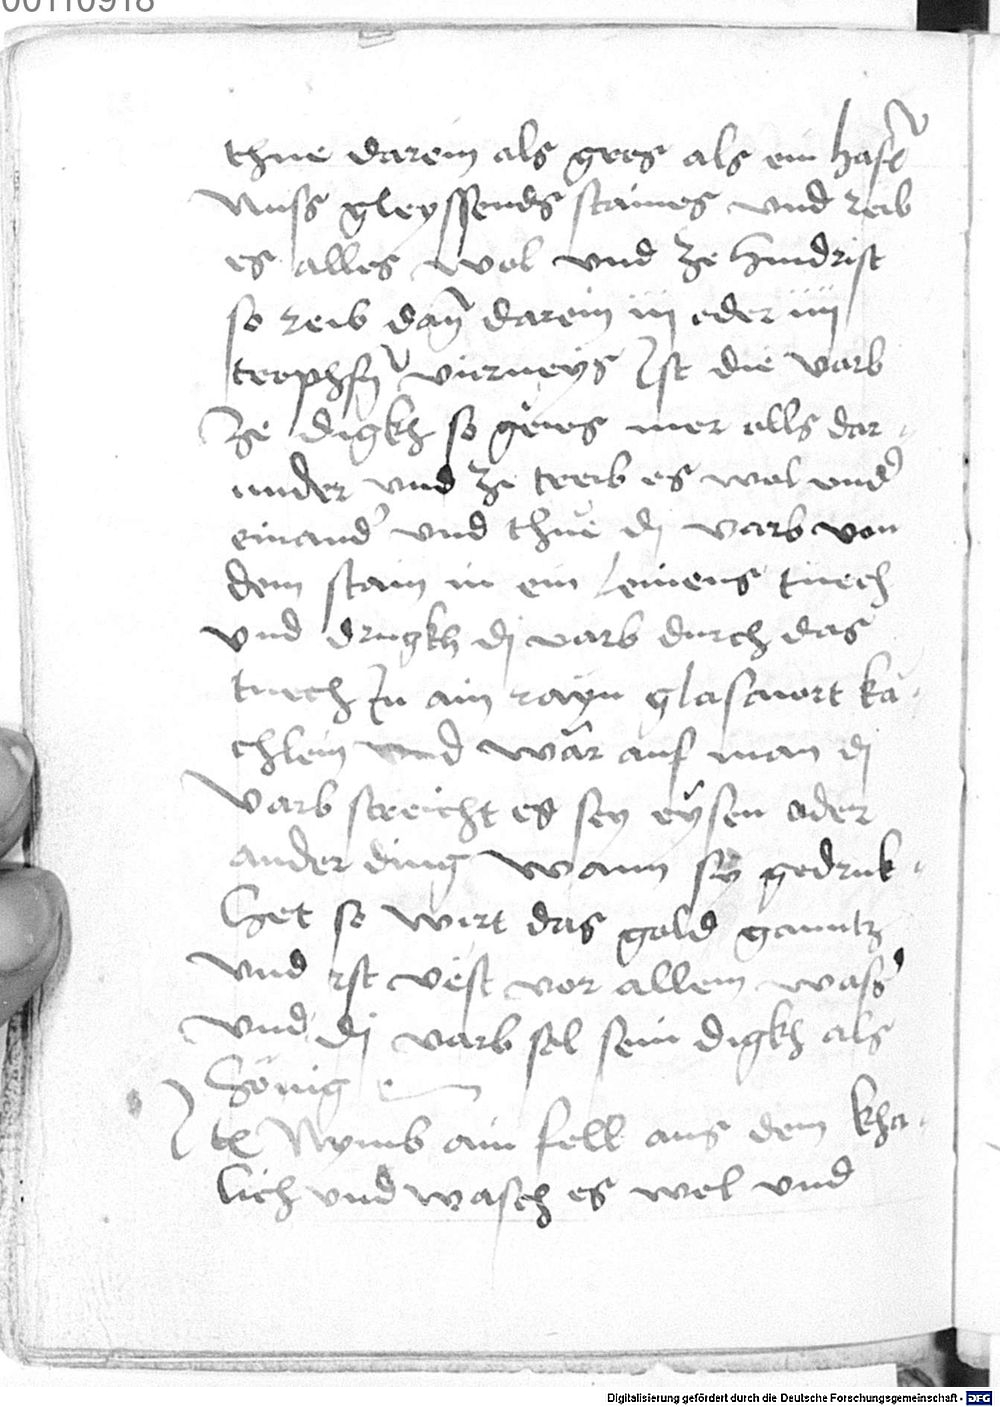 00110918
thue darein als gros als ein hasel
Nuss gleyssends staines vnd reib
es alles wol vnd ze hindrist
so reib dan̄ darein iij oder iiij
trophfn̄ virneys Ist die varb
ze digkh so geus mer olls dar
under vnd ze treib es wol vnd'
einand' vnd thue dj varb von
dem stain in ein leinens tuech
vnd drugkh dj varb durch das
tuech In ain rayn glasuort ka
chlein vnd war auf man dj
Varb streicht es sey eÿsen oder
ander ding wann sÿ gedruk
het so wirt das gold ganntz
vnd ist vest vor allem wass'
vnd dj varb sol sein digkh als
hönig
Itē Nymb ain fell aus dem kha
lich vnd wasch es wol vnd
Digitalisierung gefördert durch die Deutsche Forschungsgemeinschaft - DFG